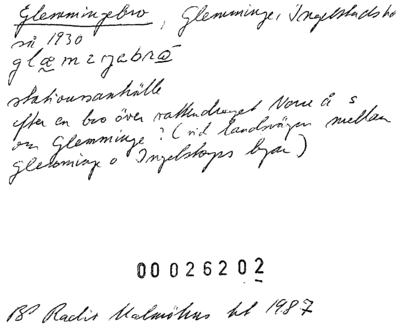 Glemmingebro, Glemminge, Ingelstads hd
1930
stationssamhälle
efter en bro över vattendraget å s
om Glemminge? (vid landsvägen mellan
Glemminge o Ingelstorps byar)
00026202
Radio Malmöhus 1987